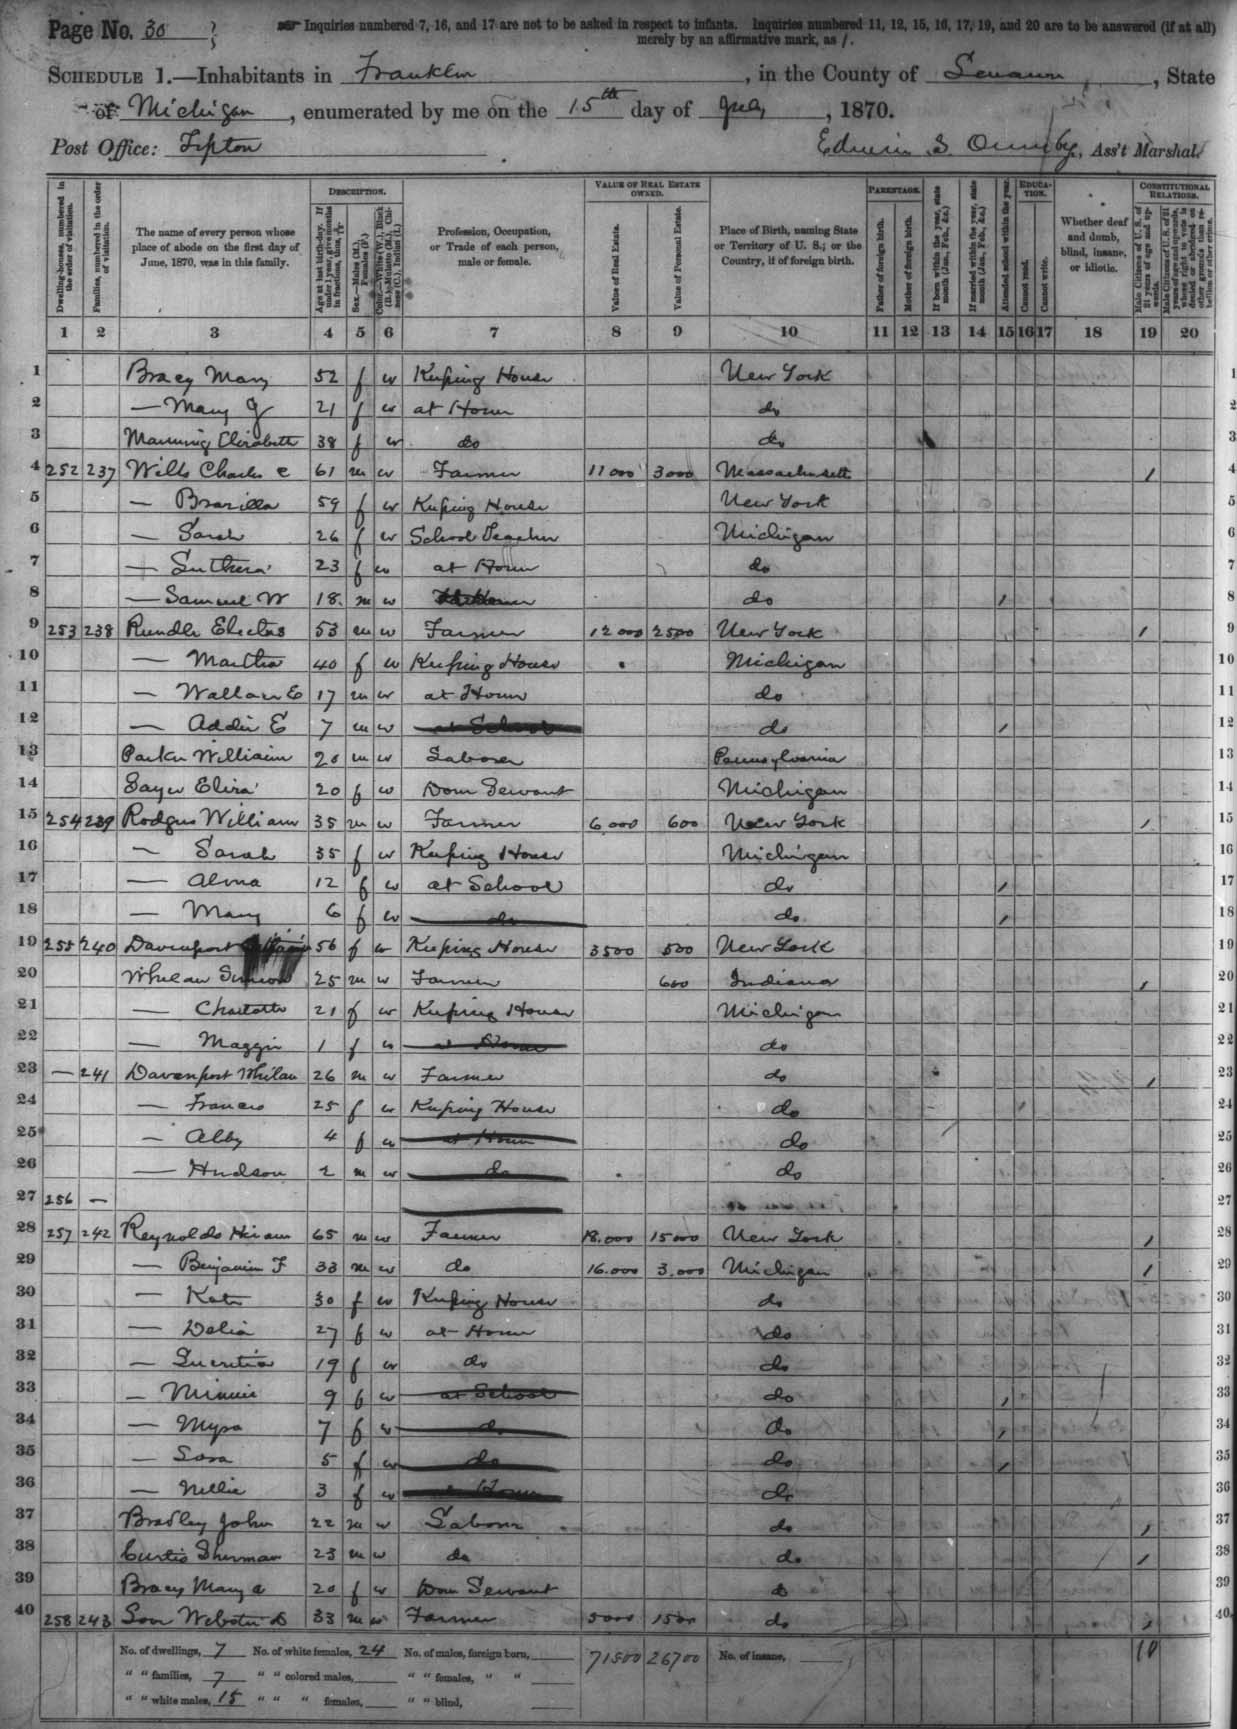 Page No. 30
Inquiries numbered 7, 16, and 17 are not to be asked in respect to infants. Inquiries numbered 11, 12, 15, 16, 17, 19, and 20 are to be answered (if at all)
merely by an affirmative mark, as /.
SCHEDULE 1.—Inhabitants in Franklin, in the County of Lenawee, State
of Michigan, enumerated by me on the 15th day of July, 1870.
Post Office: Tipton Edwin S Ormsby, Ass't Marshal.
DESCRIPTION. VALUE OF REAL ESTATE OWNED. PARENTAGE. EDUCATION. CONSTITUTIONAL RELATIONS.
Dwelling-houses, numbered in the order of visitation.
Families, numbered in the order of visitation.
The name of every person whose place of abode on the first day of June, 1870, was in this family.
Age at last birth-day. If under 1 year, give months in fractions, thus,
Sex.—Males (M.), Females (F.)
Color.—White (W.), Black (B.), Mulatto (M.), Chinese (C.), Indian (I.)
Profession, Occupation, or Trade of each person, male or female.
Value of Real Estate.
Value of Personal Estate.
Place of Birth, naming State or Territory of U. S.; or the Country, if of foreign birth.
Father of foreign birth.
Mother of foreign birth.
If born within the year, state month (Jan., Feb., &c.)
If married within the year, state month (Jan., Feb., &c.)
Attended school within the year.
Cannot read.
Cannot write.
Whether deaf and dumb, blind, insane, or idiotic.
Male Citizens of U. S. of 21 years of age and upwards.
Male Citizens of U. S. of 21 years of age and upwards, whose right to vote is denied or abridged on other grounds than rebellion or other crime.
1 2 3 4 5 6 7 8 9 10 11 12 13 14 15 16 17 18 19 20
1 Bracy Mary 52 f w Keeping House New York 1
2 — Mary J 21 f w at Home do 2
3 Manning Elizabeth 38 f w do do 3
4 252 237 Wills Charles C 61 m w Farmer 11000 3000 Massachusetts / 4
5 — Brazilla 59 f w Keeping House New York 5
6 — Sarah 26 f w School Teacher Michigan 6
7 — 23 f w at Home do 7
8 — Samuel W 18 m w do / 8
9 253 238 Rundle Electus 53 m w Farmer 12000 2500 New York / 9
10 — Martha 40 f w Keeping House Michigan 10
11 — Wallace E 17 m w at Home do 11
12 — Addie E 7 m w at School do / 12
13 Parker William 20 m w Laborer Pennsylvania 13
14 Sayer Eliza 20 f w Dom Servant Michigan 14
15 254 239 Rodgers William 35 m w Farmer 6,000 600 New York / 15
16 — Sarah 35 f w Keeping House Michigan 16
17 — Alma 12 f w at School do / 17
18 — Mary 6 f w do do / 18
19 255 240 Davenport 56 f w Keeping House 3500 500 New York 19
20 Whelan Simeon 25 m w Farmer 600 Indiana / 20
21 — Charlotte 21 f w Keeping House Michigan 21
22 — Maggie 1 f w at Home do 22
23 — 241 Davenport Whelan 26 m w Farmer do / 23
24 — Frances 25 f w Keeping House do 24
25 — Alby 4 f w at Home do 25
26 — Hudson 2 m w do do 26
27 256 — 27
28 257 242 Reynolds Hiram 65 m w Farmer 18.000 15000 New York / 28
29 — Benjamin F 33 m w do 16.000 3.000 Michigan / 29
30 — Kate 30 f w Keeping House do 30
31 — Delia 27 f w at Home do 31
32 — Lucretia 19 f w do do 32
33 — Minnie 9 f w at School do / 33
34 — Myra 7 f w do do / 34
35 — Lora 5 f w do do / 35
36 — Nellie 3 f w at Home do 36
37 Bradley John 22 m w Laborer do / 37
38 Curtis Sherman 23 m w do do / 38
39 Bracy Mary A 20 f w Dom Servant do 39
40 258 243 Webster D 33 m w Farmer 5000 1500 do / 40
No. of dwellings, 7 No. of white females, 24 No. of males, foreign born, 71500 26700 No. of insane, 10
" " families, 7 " " colored males, " " females, " "
" " white males, 15 " " " females, " " blind,